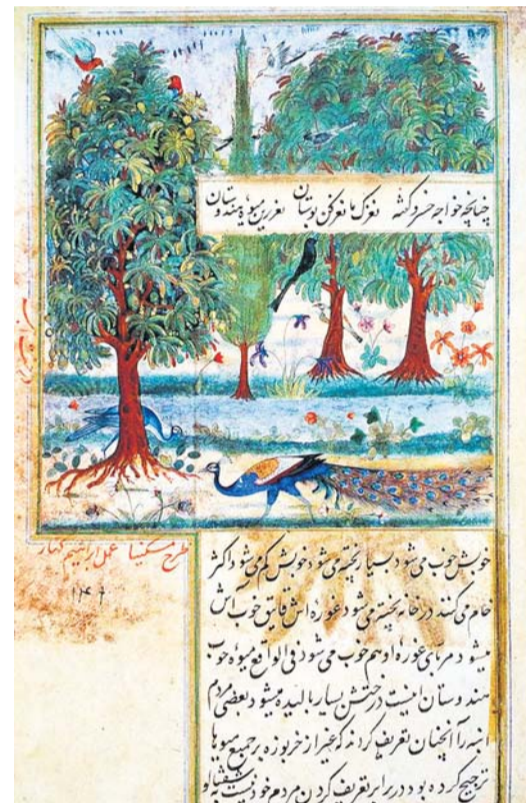 چنانچه خواجه خسرو گفته نغزک ما نغزکن بوستان نغزترین میوه هندوستان
طرح مسکینا عمل ابراهیم کهار
خوبش خوب می‌شود بسیار پخته می‌شود خوبش کم می‌شود اکثر
خام می‌کنند در خانه پخته می‌شود غوره اش قاتق خوب آش
میشود مربای غوره او هم خوب می‌شود فی الواقع میوه خوب
هندوستان اینست درختش بسیار بالیده میشود بعضی مردم
انبه را آنچنان تعریف کردند که غیر از خربوزه بر جمیع میوها
ترجیح کرده بود در برابر تعریف کردن مردم خود نیست به شفتالو